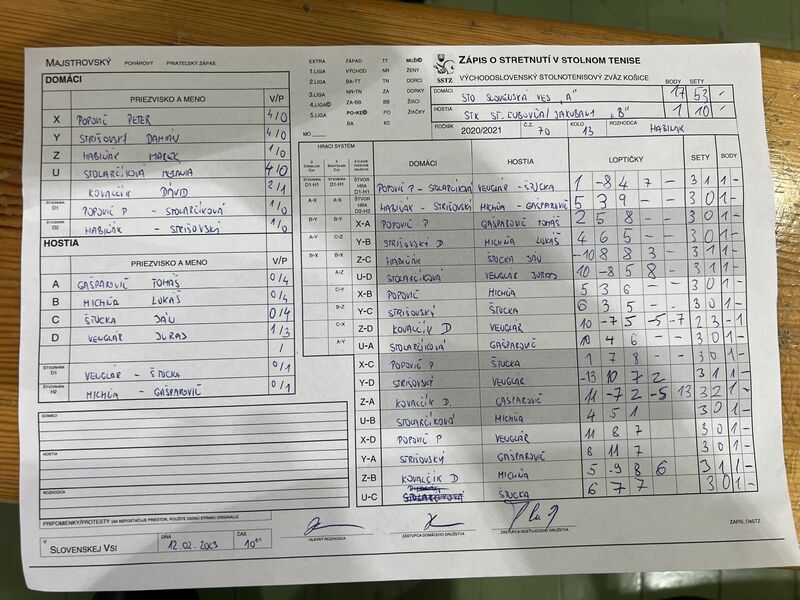 MAJSTROVSKÝ POHÁROVÝ PRIATEĽSKÝ ZÁPAS
DOMÁCI
PRIEZVISKO A MENO V/P
X POPOVIČ PETER 4/0
Y STRIŠOVSKÝ DAMIÁN 4/0
Z HABIŇÁK MAREK 1/0
U STOLARČÍKOVÁ MELÁNIA 4/0
KOVALČÍK DÁVID 2/1
ŠTVORHRA D1 POPOVIČ P - STOLARČÍKOVÁ 1/0
ŠTVORHRA D2 HABIŇÁK - STRIŠOVSKÝ 1/0
HOSTIA
PRIEZVISKO A MENO V/P
A GAŠPAROVIČ TOMÁŠ 0/4
B MICHŇA LUKÁŠ 0/4
C ŠTUCKA JÁN 0/4
D VEUGLÁR JURAJ 1/3
/
ŠTVORHRA D1 VEUGLÁR - ŠTUCKA 0/1
ŠTVORHRA H2 MICHŇA - GAŠPAROVIČ 0/1
DOMÁCI
HOSTIA
ROZHODCA
PRIPOMIENKY/PROTESTY (AK NEPOSTAČUJE PRIESTOR, POUŽITE ZADNÚ STRANU ORIGINÁLU)
V SLOVENSKEJ VSI DŇA 12.02.2023 ČAS 10⁰⁰
EXTRA ZÁPAD TT MUŽI
1.LIGA VÝCHOD NR ŽENY
2.LIGA BA-TT TN DORCI
3.LIGA NR-TN ZA DORKY
4.LIGA ZA-BB BB ŽIACI
5.LIGA PO-KE PO ŽIAČKY
MO BA KE
SSTZ
ZÁPIS O STRETNUTÍ V STOLNOM TENISE
VÝCHODOSLOVENSKÝ STOLNOTENISOVÝ ZVÄZ KOŠICE
BODY SETY
DOMÁCI STO SLOVENSKÁ VES "A" 17 53
HOSTIA STK ST. ĽUBOVŇA/JAKUBANY "B" 1 10
ROČNÍK 2020/2021 Č.Z. 70 KOLO 13 ROZHODCA HABIŇÁK
HRACÍ SYSTÉM DOMÁCI HOSTIA LOPTIČKY SETY BODY
ŠTVORHRA D1-H1 POPOVIČ P - STOLARČÍKOVÁ VEUGLÁR - ŠTUCKA 1 -8 4 7 - 3 1 1 -
ŠTVORHRA D2-H2 HABIŇÁK - STRIŠOVSKÝ MICHŇA - GAŠPAROVIČ 5 3 9 - - 3 0 1 -
X-A POPOVIČ P GAŠPAROVIČ TOMÁŠ 2 5 8 - - 3 0 1 -
Y-B STRIŠOVSKÝ D MICHŇA LUKÁŠ 4 6 5 - - 3 0 1 -
Z-C HABIŇÁK ŠTUCKA JÁN -10 8 8 3 - 3 1 1 -
U-D STOLARČÍKOVÁ VEUGLÁR JURAJ 10 -8 5 8 - 3 1 1 -
X-B POPOVIČ MICHŇA 5 3 6 - - 3 0 1 -
Y-C STRIŠOVSKÝ ŠTUCKA 6 3 5 - - 3 0 1 -
Z-D KOVALČÍK D VEUGLÁR 10 -7 5 -5 -7 2 3 - 1
U-A STOLARČÍKOVÁ GAŠPAROVIČ 10 4 6 - - 3 0 1 -
X-C POPOVIČ P ŠTUCKA 1 7 8 - - 3 0 1 -
Y-D STRIŠOVSKÝ VEUGLÁR -13 10 7 2 3 1 1
Z-A KOVALČÍK D. GAŠPAROVIČ 11 -7 2 -5 13 3 2 1 -
U-B STOLARČÍKOVÁ MICHŇA 4 5 1 3 0 1 -
X-D POPOVIČ P VEUGLÁR 11 8 7 3 0 1 -
Y-A STRIŠOVSKÝ GAŠPAROVIČ 8 11 7 3 0 1 -
Z-B KOVALČÍK D MICHŇA 5 -9 8 6 3 1 1 -
U-C STOLARČÍKOVÁ ŠTUCKA 6 7 7 3 0 1 -
HLAVNÝ ROZHODCA ZÁSTUPCA DOMÁCEHO DRUŽSTVA ZÁSTUPCA HOSŤUJÚCEHO DRUŽSTVA ZAPIS_OsSTZ